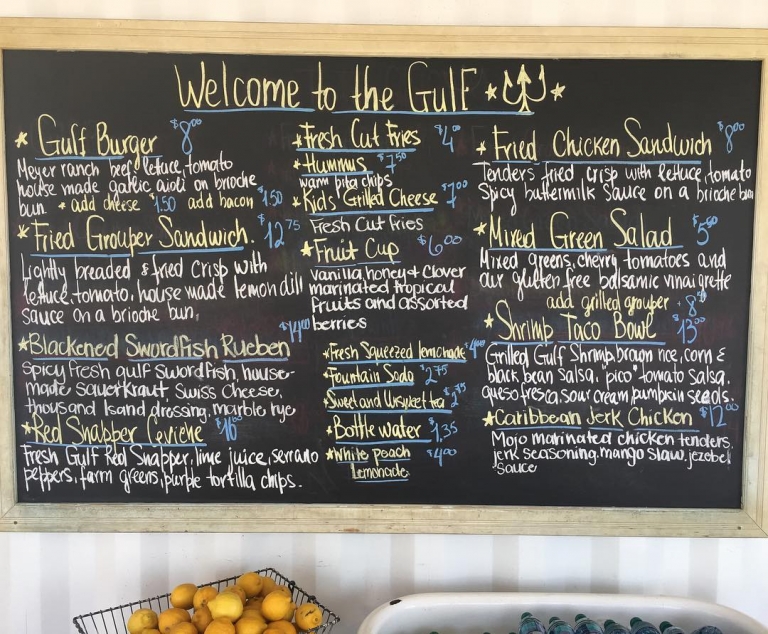 Welcome to the Gulf
* Gulf Burger $8.00
Meyer ranch beef, lettuce, tomato
house made garlic aioli on brioche
bun * add cheese $1.50 add bacon $1.50
* Fried Grouper Sandwich. $12.75
Lightly breaded & fried crisp with
lettuce, tomato, house made lemon dill
sauce on a brioche bun,
$14.00
* Blackened Swordfish Rueben
Spicy fresh gulf swordfish, house-
made sauerkraut, Swiss Cheese,
thousand Isand dressing, marble rye
* Red Snapper Ceviche $16
Fresh Gulf Red Snapper, lime juice, serrano
peppers, farm greens, purple tortilla chips.
* Fresh Cut Fries $4
* Hummus $7.50
warm pita chips
* Kids' Grilled Cheese $7.00
Fresh Cut fries
* Fruit Cup $6.00
Vanilla, honey & clover
marinated tropical
fruits and assorted
berries
* Fresh Squeezed lemonade $4.00
* Fountain Soda $2.75
* Sweet and Unsweet tea
* Bottle water $1.35
* White peach $4.00
Lemonade
* Fried Chicken Sandwich $8.00
Tenders fried crisp with lettuce, tomato
Spicy buttermilk sauce on a brioche bun
* Mixed Green Salad
Mixed greens, cherry tomatoes and
our gluten free balsamic vinaigrette
add grilled grouper
* Shrimp Taco Bowl $13.00
Grilled Gulf Shrimp, brown rice, corn &
black bean salsa, "pico" tomato salsa,
queso fresca, sour cream, pumpkin seeds.
* Caribbean Jerk Chicken $12.00
Mojo marinated chicken tenders,
jerk seasoning, mango slaw, jezebel
sauce